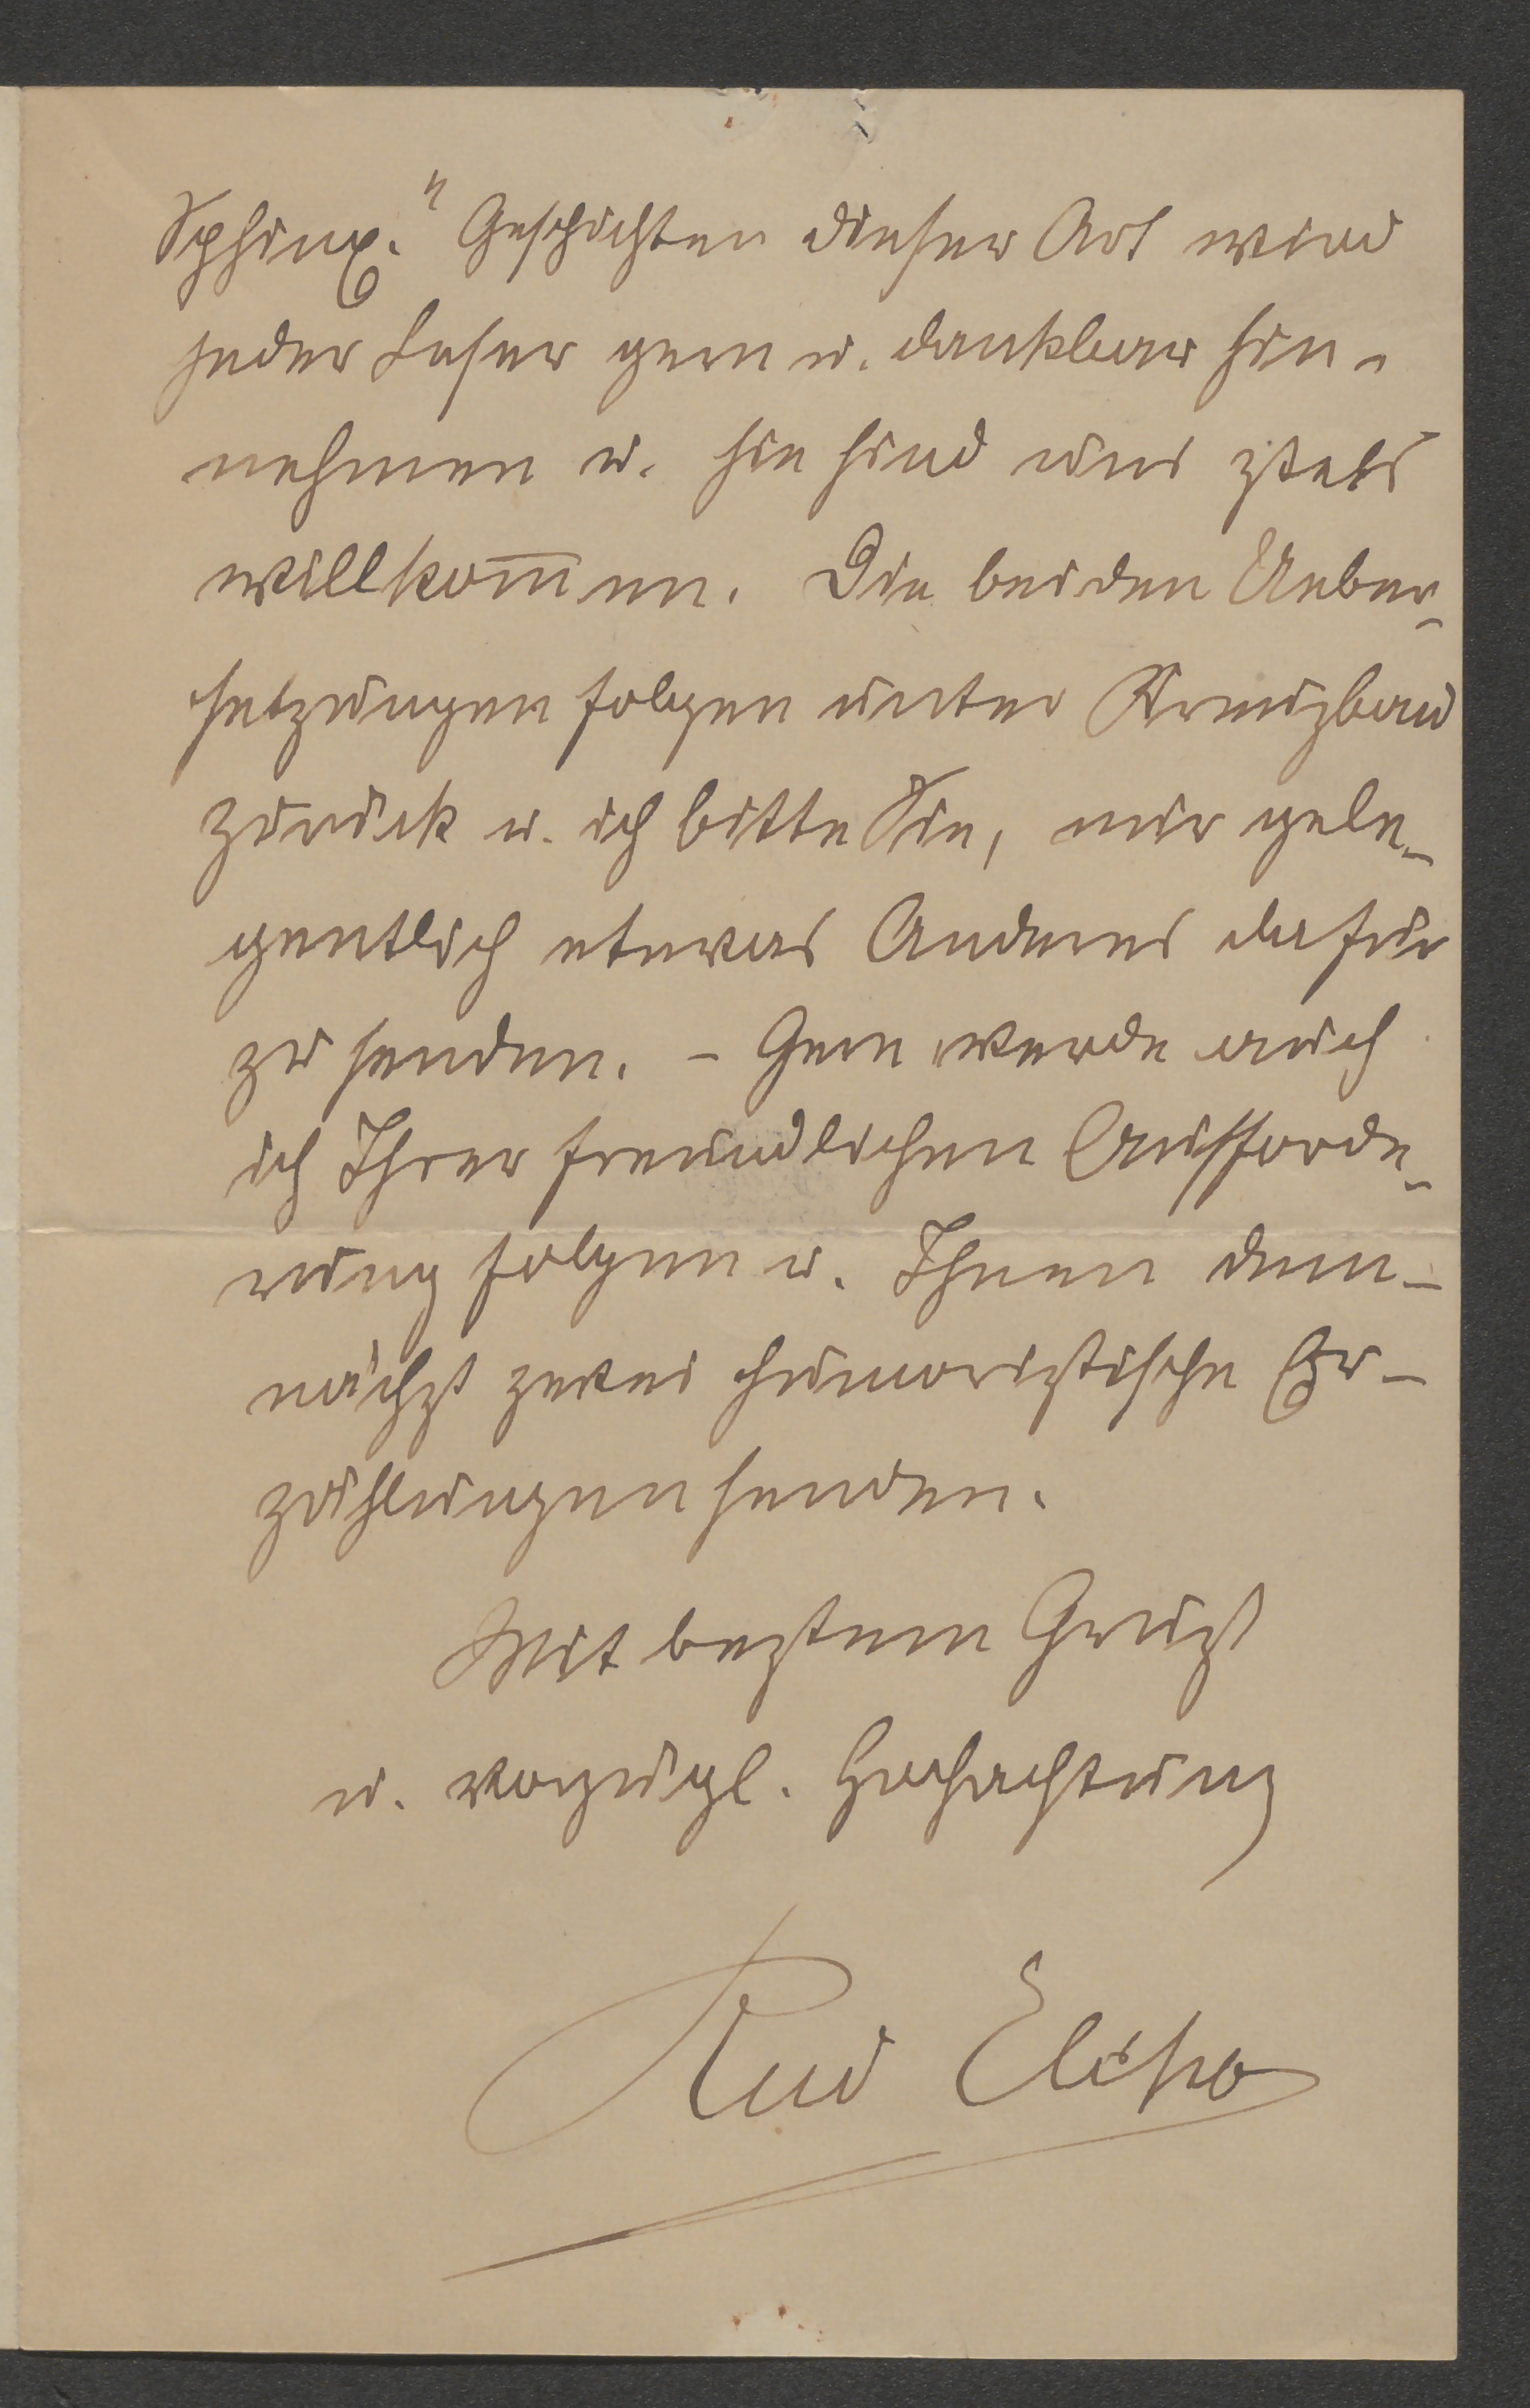 Sphinx." Geschichten dieser Art wird
jeder Leser gern u. dankbar hin-
nehmen u. sie sind uns stets
willkom̅en. Die beiden Ueber-
setzungen folgen unter Kreuzband
zurück u. ich bitte Sie, mir gele-
gentlich etwas Anderes dafür
zu senden. – Gern werde auch
ich Ihrer freundlichen Aufforde-
rung folgen u. Ihnen dem-
nächst zwei humoristische Er-
zählungen senden.
Mit bestem Gruß
u. vorzügl. Hochachtung
Rud Elcho